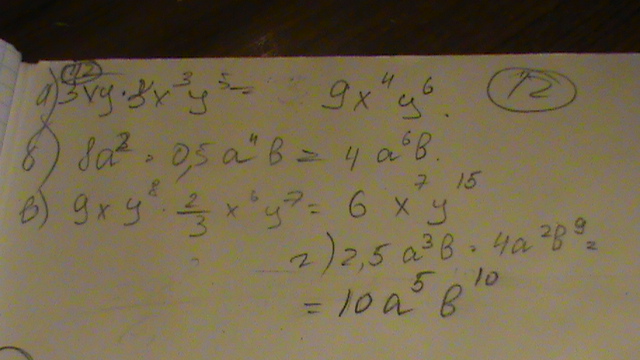 12
а) 3xy · 3x³y⁵ = 9x⁴y⁶.
12
б) 8a² · 0,5a⁴b = 4a⁶b.
в) 9xy⁸ · 2/3 x⁶y⁷ = 6x⁷y¹⁵
г) 2,5a³b · 4a²b⁹ =
= 10a⁵b¹⁰